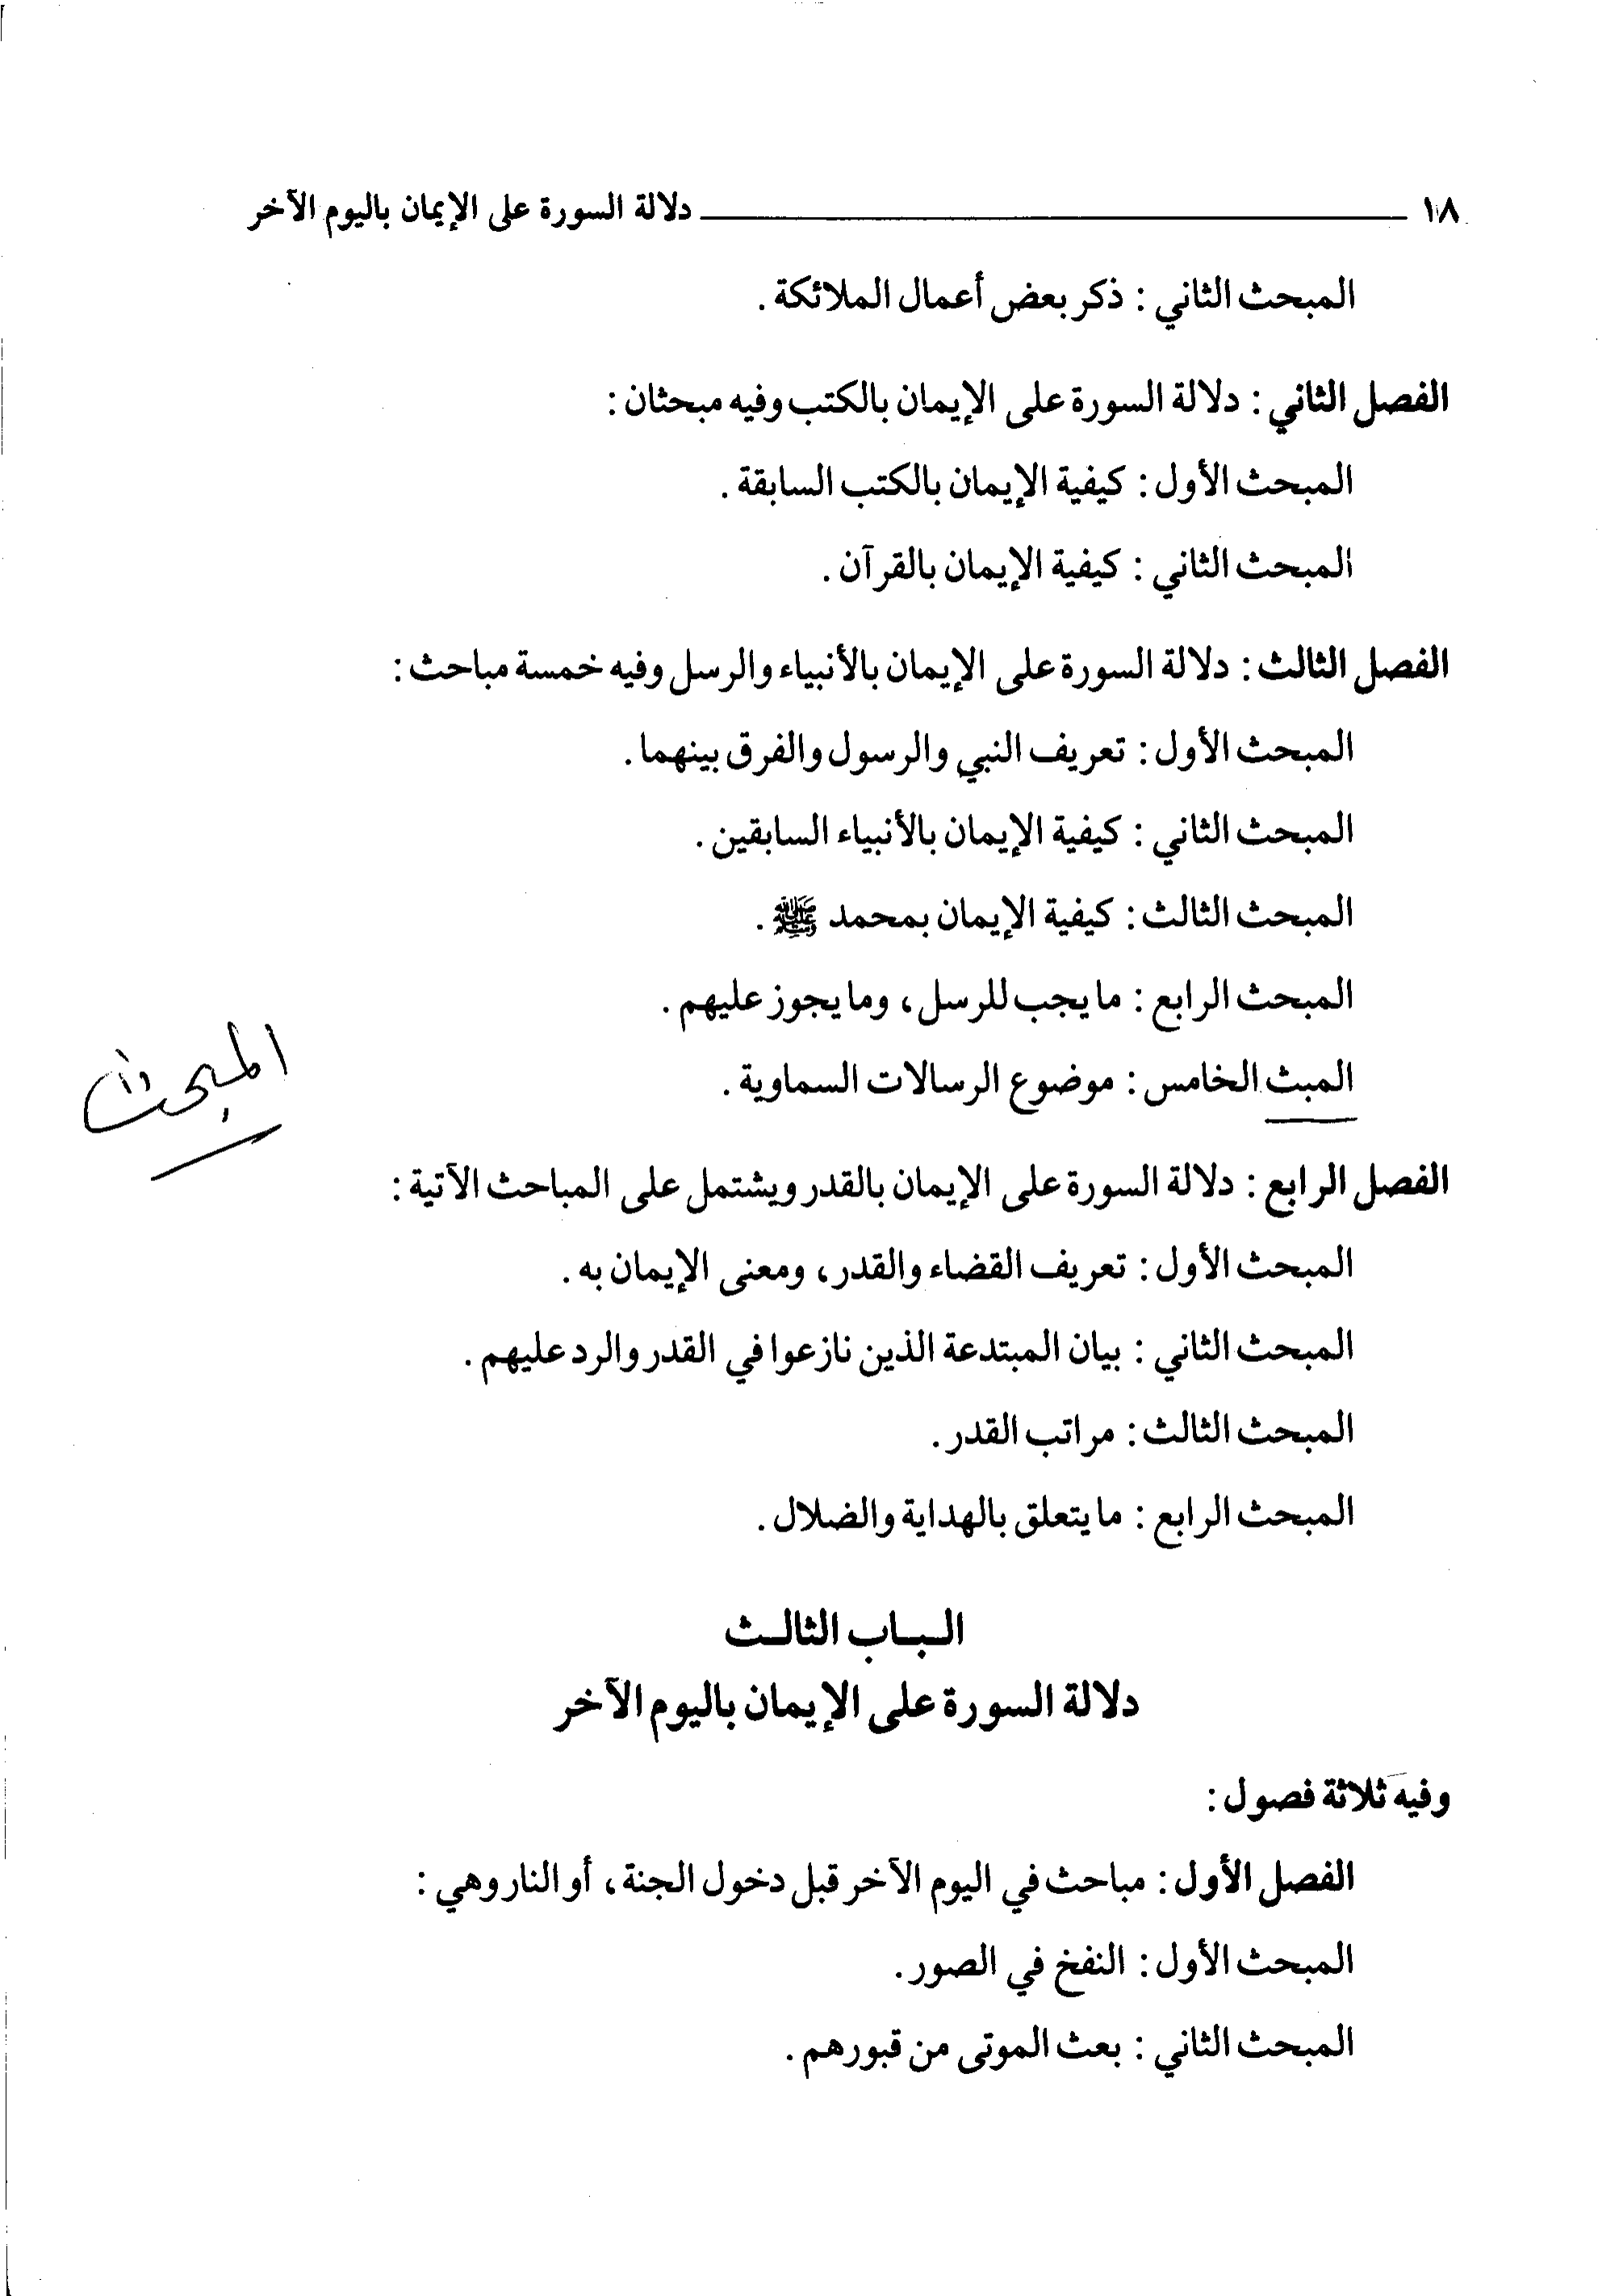 ١٨ دلالة السورة على الإيمان باليوم الآخر
المبحث الثاني : ذكر بعض أعمال الملائكة .
الفصل الثاني : دلالة السورة على الإيمان بالكتب وفيه مبحثان :
المبحث الأول : كيفية الإيمان بالكتب السابقة .
المبحث الثاني : كيفية الإيمان بالقرآن .
الفصل الثالث : دلالة السورة على الإيمان بالأنبياء والرسل وفيه خمسة مباحث :
المبحث الأول : تعريف النبي والرسول والفرق بينهما .
المبحث الثاني : كيفية الإيمان بالأنبياء السابقين .
المبحث الثالث : كيفية الإيمان بمحمد ﷺ .
المبحث الرابع : ما يجب للرسل ، وما يجوز عليهم .
المبث الخامس : موضوع الرسالات السماوية .
المبحث
الفصل الرابع : دلالة السورة على الإيمان بالقدر ويشتمل على المباحث الآتية :
المبحث الأول : تعريف القضاء والقدر ، ومعنى الإيمان به .
المبحث الثاني : بيان المبتدعة الذين نازعوا في القدر والرد عليهم .
المبحث الثالث : مراتب القدر .
المبحث الرابع : ما يتعلق بالهداية والضلال .
الـبـاب الثالـث
دلالة السورة على الإيمان باليوم الآخر
وفيه ثلاثة فصول :
الفصل الأول : مباحث في اليوم الآخر قبل دخول الجنة ، أو النار وهي :
المبحث الأول : النفخ في الصور .
المبحث الثاني : بعث الموتى من قبورهم .